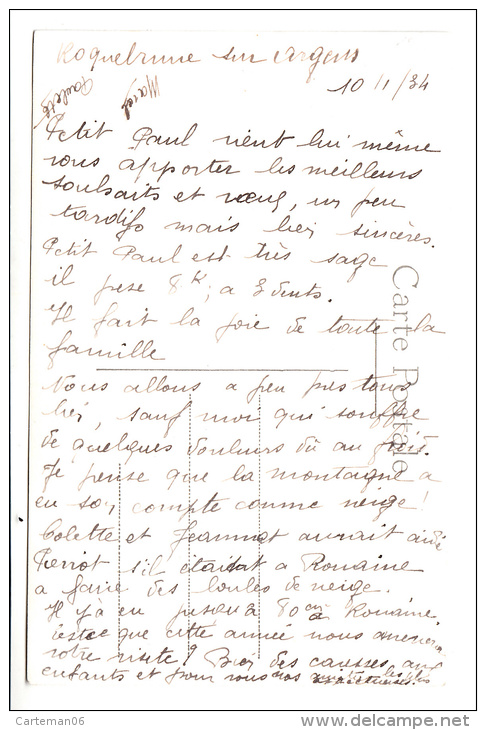 Roquebrune sur Argens
10/1/34
Marcel
Paulette
Petit Paul vient lui même
vous apporter les meilleurs
souhaits et vœux, un peu
tardifs mais bien sincères.
Petit Paul est très sage
il pese 8k, a 3 dents.
Il fait la joie de toute la
famille
Nous allons a peu pres tous
bien, sauf moi qui souffre
de quelques douleurs dû au froid.
Je pense que la montagne a
eu son compte comme neige!
Colette et Jeannot aurait aidé
Pierrot s'il était a Rouaine
a faire des boules de neige.
Il y a eu jusqu'a 80cm a Rouaine.
est ce que cette année nous amenera
votre visite? Bien des caresses aux
enfants et pour vous nos amitiés les plus
affectueuses.
Carte Postale
Carteman06
delcampe.net